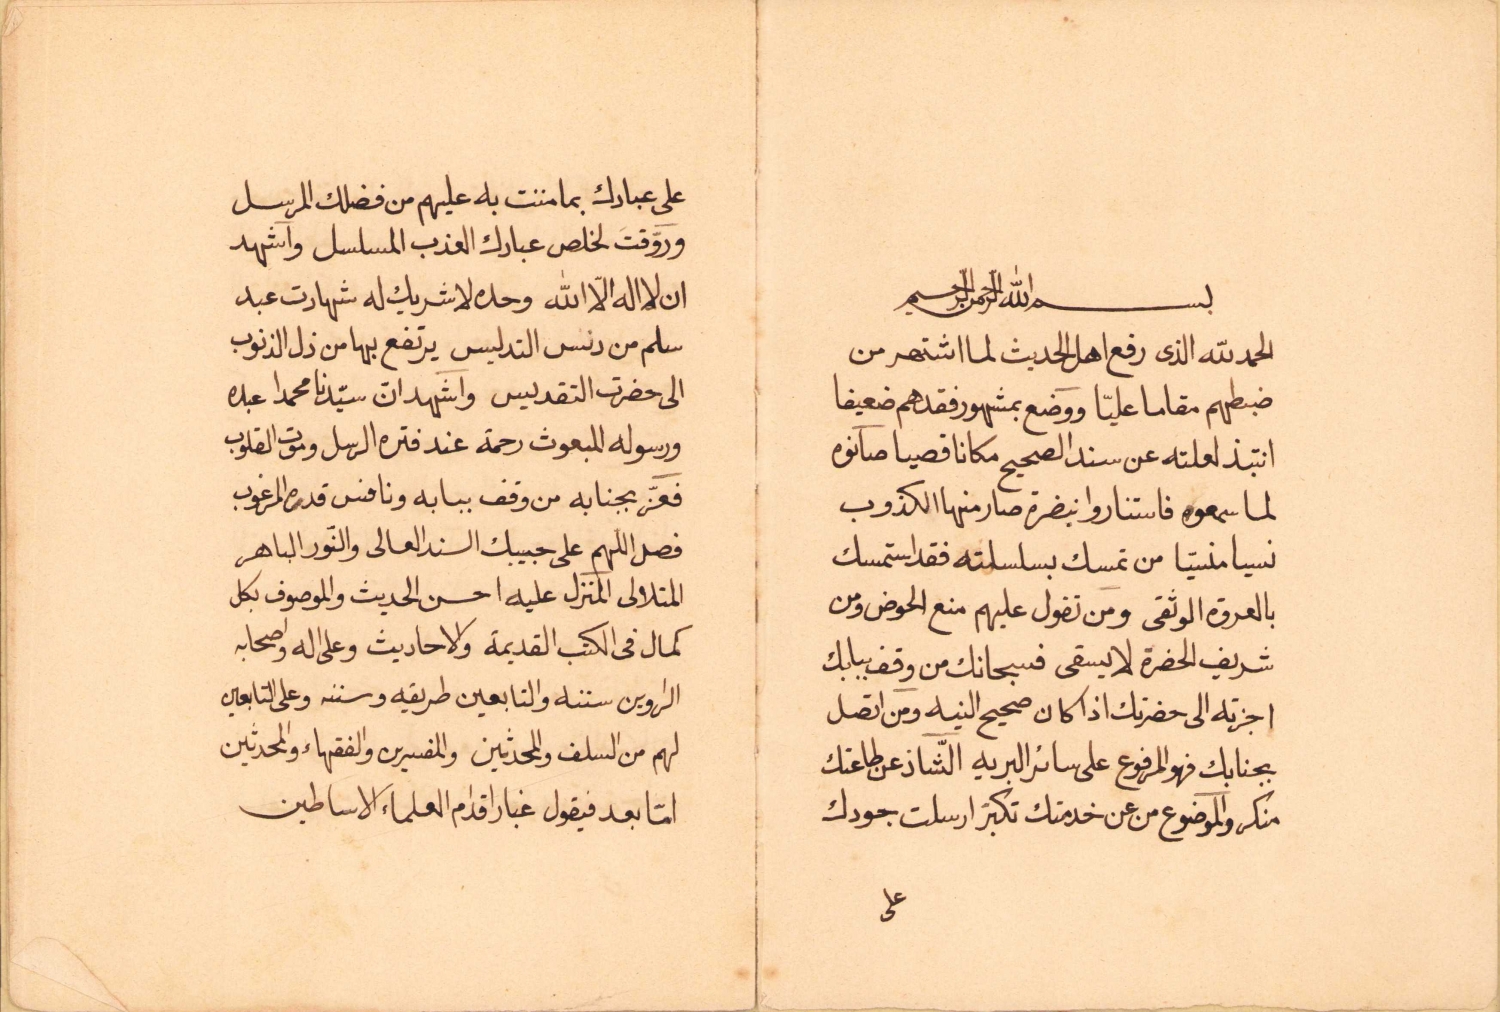 بسم الله الرحمن الرحيم
الحمد لله الذى رفع اهل الحديث لما اشتهر من
ضبطهم مقاما عليّا ووضع بمشهور فقدهم ضعيفا
انتبذ لعلته عن سند الصحيح مكانا قصيا صانوه
لما سمعوه فاستناروا بنضرة صار منها الكذوب
نسيا منسيّا من تمسك بسلسلته فقد استمسك
بالعروة الوثقى ومن تقول عليهم منع الحوض ومن
شريف الحضرة لا يسقى فسبحانك من وقف ببابك
اجزته الى حضرتك اذا كان صحيح النيه ومن اتصل
بجنابك فهو المرفوع على سائر البريه الشّاذ عن طاعتك
منكر والموضوع من عن خدمتك تكبّر ارسلت جودك
على
على عبادك بما مننت به عليهم من فضلك المرسل
وروّقت لخلص عبادك العذب المسلسل واشهد
ان لا اله الّا الله وحده لا شريك له شهادت عبد
سلم من دنس التدليس يرتفع بها من ذل الذنوب
الى حضرت التقديس واشهد انّ سيّدنا محمدا عبده
ورسوله المبعوث رحمة عند فتره الرسل وموت القلوب
فعزّ بجنابه من وقف ببابه ونافس قدره المرغوب
فصل اللهم على حبيبك السند العالى والنّور الباهر
المتلالى المنزل عليه احسن الحديث والموصوف بكل
كمال فى الكتب القديمة والاحاديث وعلى اله واصحابه
الراوين سنته والتابعين طريقه وسننه وعلى التابعين
لهم من السلف والمحدثين والمفسرين والفقهاء والمحدثين
امّا بعد فيقول غبار اقدام العلماء الاساطين